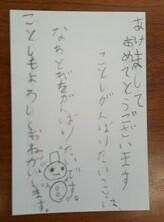 あけまして
おめでとうございます
ことしがんばりたいことは、
なわとびをがんばりたいです。
ことしもよろしくおねがいします。